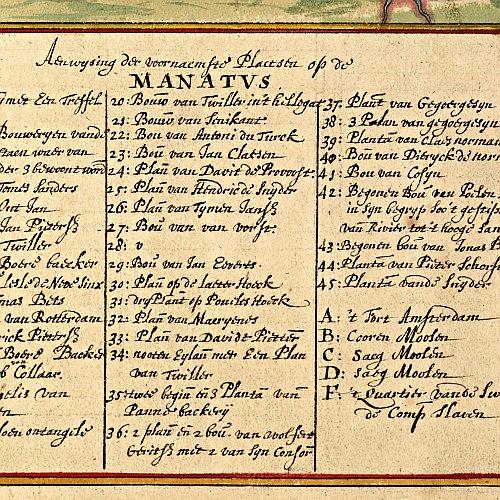 Aenwysing der voornaemste Plaetsen op de
MANATVS
met Een Treffel
Bouweryen vande
staen waer van
der 3 bewoont word
Tomes Sanders
Ont Jan
Jan Pieterss
Twiller
Boere backer
Lesle de Neve Sinx
Tomas Bets
van Rotterdam
rick Pieterss
Boere Backer
Collaer.
van
en
ontangele
20: Bouw van Twiller in't hellegat
21: Bouw van Senikant
22: Bou van Antoni du Turck
23: Bou van Jan Claesen
24: Plan van Davit de Provoost
25: Plan van Hendric de Snyder
26: Plan van Tymen Janss
27: Bou van van vorst.
28: v
29: Bou van Jan Everts.
30: Plan op de Laeter Hoeck
31: dry Plant op Poueles Hoeck
32: Plan van Maeryenes
33: Plan van Davidt Pietter
34: nooten Eylan met Een Plan
van Twiller
35 twee begin en 3 Planta van
Panne backery
36: 2 plan en 2 bou van wolfert
Geritss met 2 van syn Consor
37: Plant van Gegoergesyn
38: 3 Palan van gegoergesyn
39: Planta van Claes norman
40: Bou van Dieryck de nor
41: Bou van Cosyn
42: Begonen Bou van
in syn begryp
van Rivier tot 't hooge
43: Begonen bou van Jonas B
44: Planta van Pieter Schorst
45: Planta vande Snyder
A: 't Fort Amsterdam
B: Cooren Moolen
C: Saeg Moolen
D: Saeg Moolen
F: 't Quartier vande Sw
de Comp Slaven